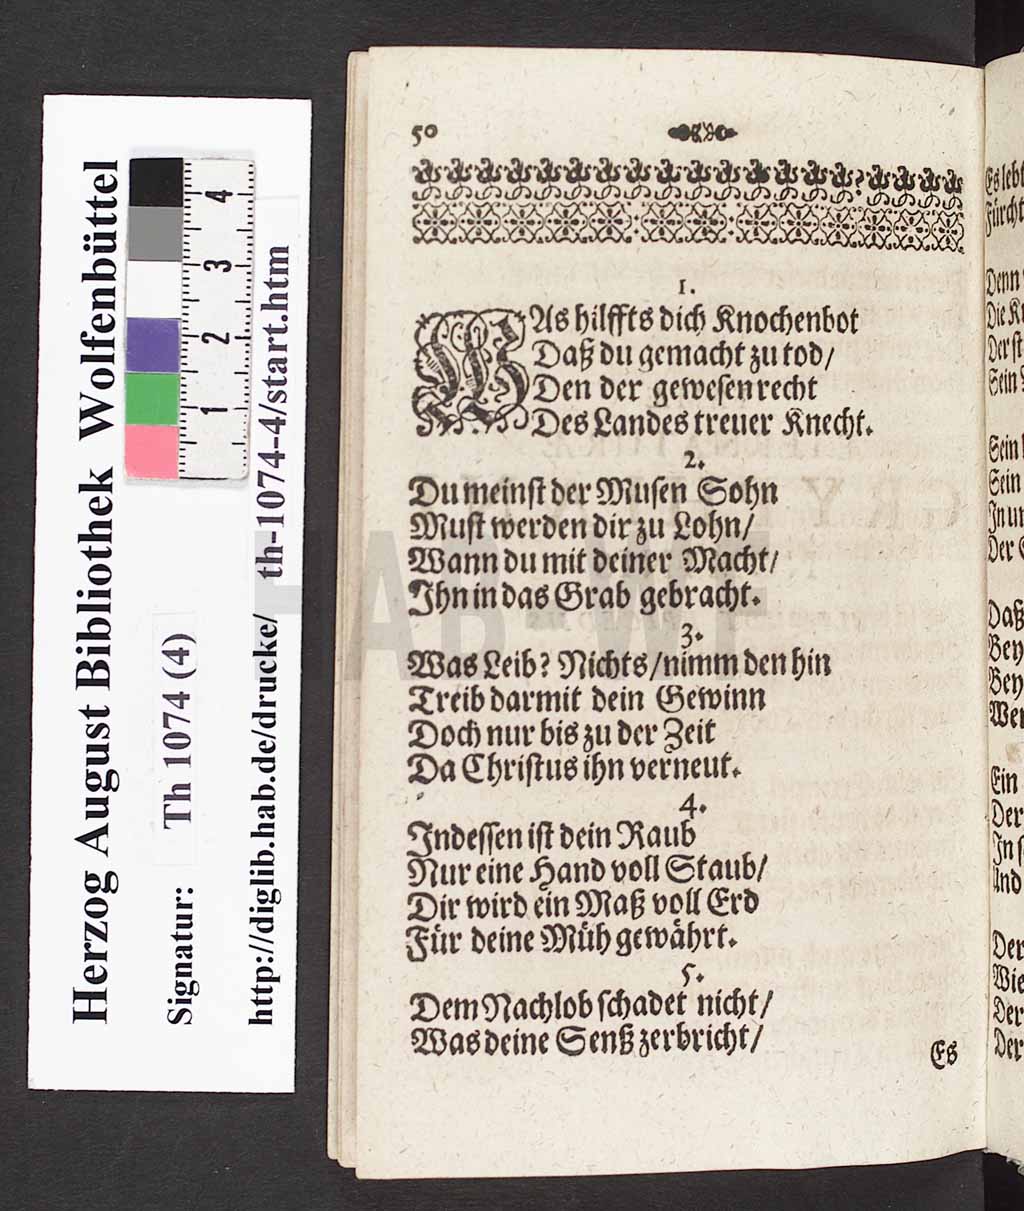 Herzog August Bibliothek Wolfenbüttel
Signatur: Th 1074 (4)
http://diglib.hab.de/drucke/ th-1074-4/start.htm
4
3
2
1
50
1.
WAs hilffts dich Knochenbot
Daß du gemacht zu tod/
Den der gewesen recht
Des Landes treuer Knecht.
2.
Du meinst der Musen Sohn
Must werden dir zu Lohn/
Wann du mit deiner Macht/
Ihn in das Grab gebracht.
3.
Was Leib? Nichts/nimm den hin
Treib darmit dein Gewinn
Doch nur bis zu der Zeit
Da Christus ihn verneut.
4.
Indessen ist dein Raub
Nur eine Hand voll Staub/
Dir wird ein Maß voll Erd
Für deine Müh gewährt.
5.
Dem Nachlob schadet nicht/
Was deine Senß zerbricht/
Es
Es lebt
Fürcht
Denn
Die
Der
Sein
Sein
Sein
In
Der
Daß
Bey
Bey
Ein
Der
In
Und
Der
Wie
Der
Der
HAB-WF